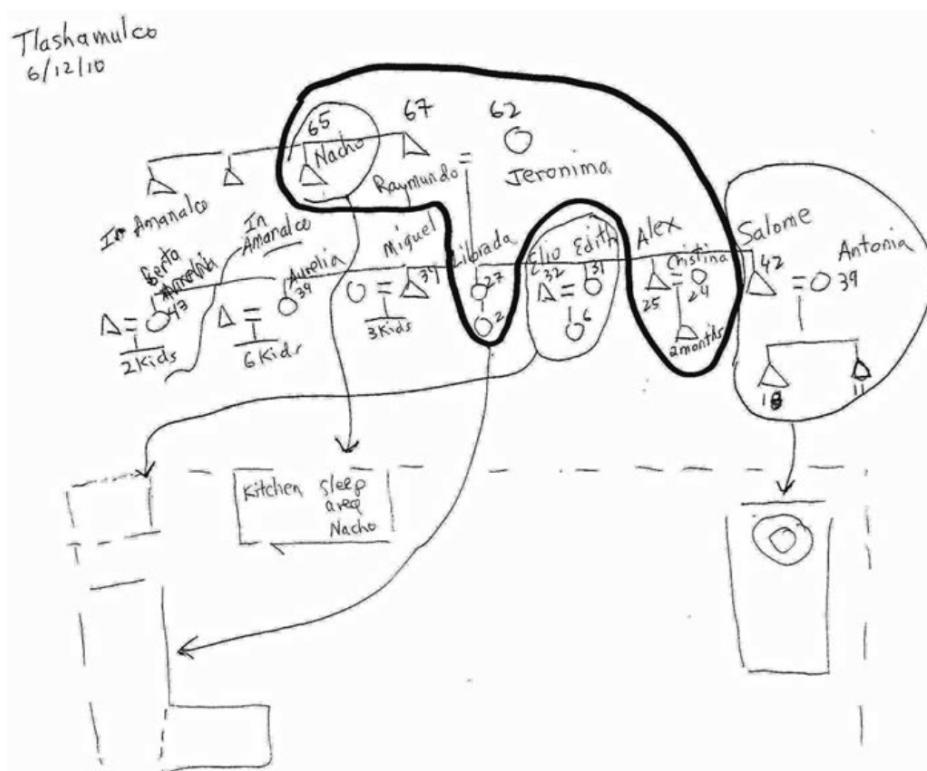 Tlashamulco
6/12/10
65
67
62
Nacho
Raymundo
=
Jeronima
In Amanalco
In
Amanalco
Berta
Amelia
43
=
2 Kids
Aurelia
39
=
6 Kids
Miguel
=
39
3 Kids
Librada
27
2
Elio
32
=
Edith
31
6
Alex
25
=
Cristina
24
2 months
Salome
42
=
Antonia
39
18
11
Kitchen sleep
area
Nacho